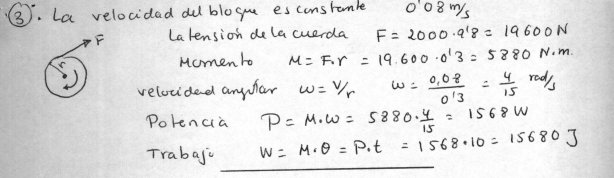 ③. La velocidad del bloque es constante 0'08 m/s
La tensión de la cuerda F = 2000·9'8 = 19600N
Momento M = F·r = 19.600·0'3 = 5880 N·m.
velocidad angular ω = V/r ω = 0,08/0'3 = 4/15 rad/s
Potencia P = M·ω = 5880·4/15 = 1568 W
Trabajo W = M·θ = P·t = 1568·10 = 15680 J
F
r